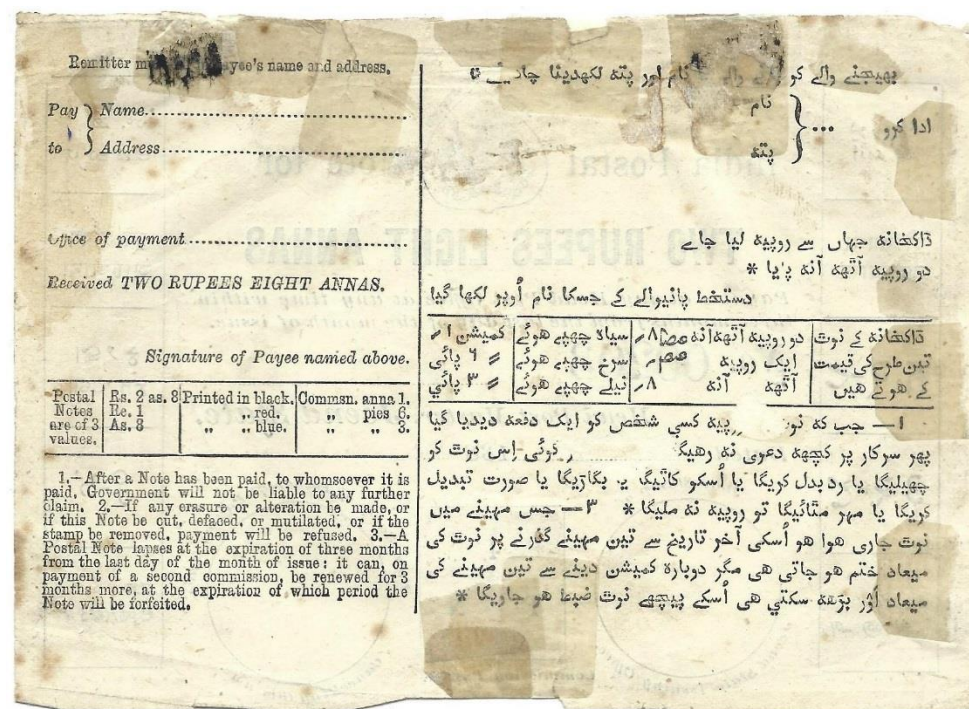 Remitter m yee's name and address.
Pay } Name
to } Address
Office of payment
Received TWO RUPEES EIGHT ANNAS.
Signature of Payee named above.
Postal Notes are of 3 values. | Rs. 2 as. 8 | Printed in black. | Commsn. anna 1.
Re. 1 | „ „ red. | „ pies 6.
As. 8 | „ „ blue. | „ „ 3.
1.—After a Note has been paid, to whomsoever it is
paid, Government will not be liable to any further
claim. 2.—If any erasure or alteration be made, or
if this Note be cut, defaced, or mutilated, or if the
stamp be removed, payment will be refused. 3.—A
Postal Note lapses at the expiration of three months
from the last day of the month of issue: it can, on
payment of a second commission, be renewed for 3
months more, at the expiration of which period the
Note will be forfeited.
بھیجنے والے کو والے نام اور پتہ لکھدینا چاہئے *
ادا کرو ... { نام
پتہ
ڈاکخانہ جہاں سے روپیہ لیا جاے
دو روپیہ آٹھہ آنہ پایا *
دستخط پانیوالے کے جسکا نام اُوپر لکھا گیا
ڈاکخانہ کے نوٹ | دو روپیہ آٹھہ آنہ ۸؍ | سیاہ چھپے ہوئے | کمیشن ۱؍
تین طرح کی قیمت | ایک روپیہ | سرخ چھپے ہوئے | 〃 ۶ پائی
کے ہوتے ہیں | آٹھہ آنہ ۸؍ | نیلے چھپے ہوئے | 〃 ۳ پائی
۱ — جب کہ نوٹ پیہ کسی شخص کو ایک دفعہ دیدیا گیا
پھر سرکار پر کچھہ دعوی نہ رھیگا کوئی اِس نوٹ کو
چھیلیگا یا رد بدل کریگا یا اُسکو کاٹیگا یا بگاڑیگا یا صورت تبدیل
کریگا یا مہر مٹائیگا تو روپیہ نہ ملیگا * ۳ — جس مہینے میں
نوٹ جاری ھوا ھو اُسکی آخر تاریخ سے تین مہینے گذرنے پر نوٹ کی
میعاد ختم ھو جاتی ھی مگر دوبارہ کمیشن دینے سے تین مہینے کی
میعاد اَوْر بڑھہ سکتی ھی اُسکے پیچھے نوٹ ضبط ھو جاویگا *